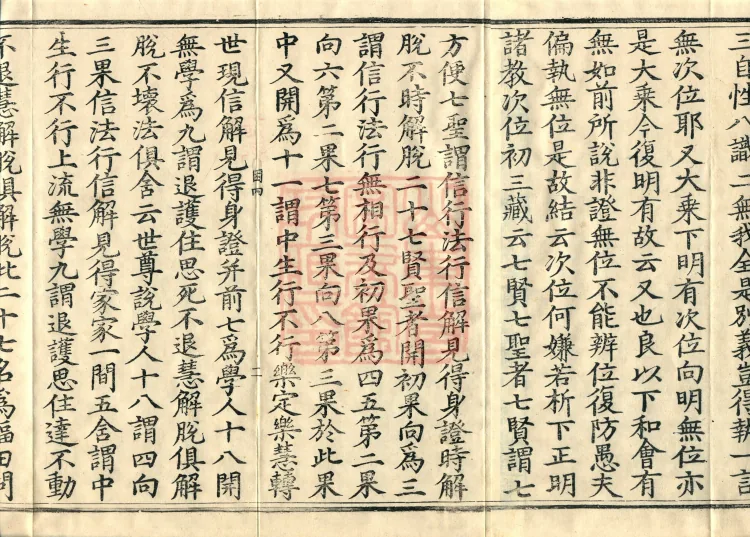 三自性八識二無我全是別義豈得執一言
無次位耶又大乗下明有次位向明無位亦
是大乗今復明有故云又也良以下和會有
無如前所說非證無位不能辨位復防愚夫
偏執無位是故結云次位何嫌若析下正明
諸教次位初三藏云七賢七聖者七賢謂七
方便七聖謂信行法行信解見得身證時解
脫不時解脫二十七賢聖者開初果向爲三
謂信行法行無相行及初果爲四五第二果
向六第二果七第三果向八第三果於此果
中又開爲十一謂中生行不行樂定樂慧轉
世現信解見得身證并前七爲學人十八開
無學爲九謂退護住思死不退慧解脫俱解
脫不壞法俱舍云世尊說學人十八謂四向
三果信法行信解見得家家一間五舍謂中
生行不行上流無學九謂退護思住達不動
不退慧解脫俱解脫此二十七名爲福田問